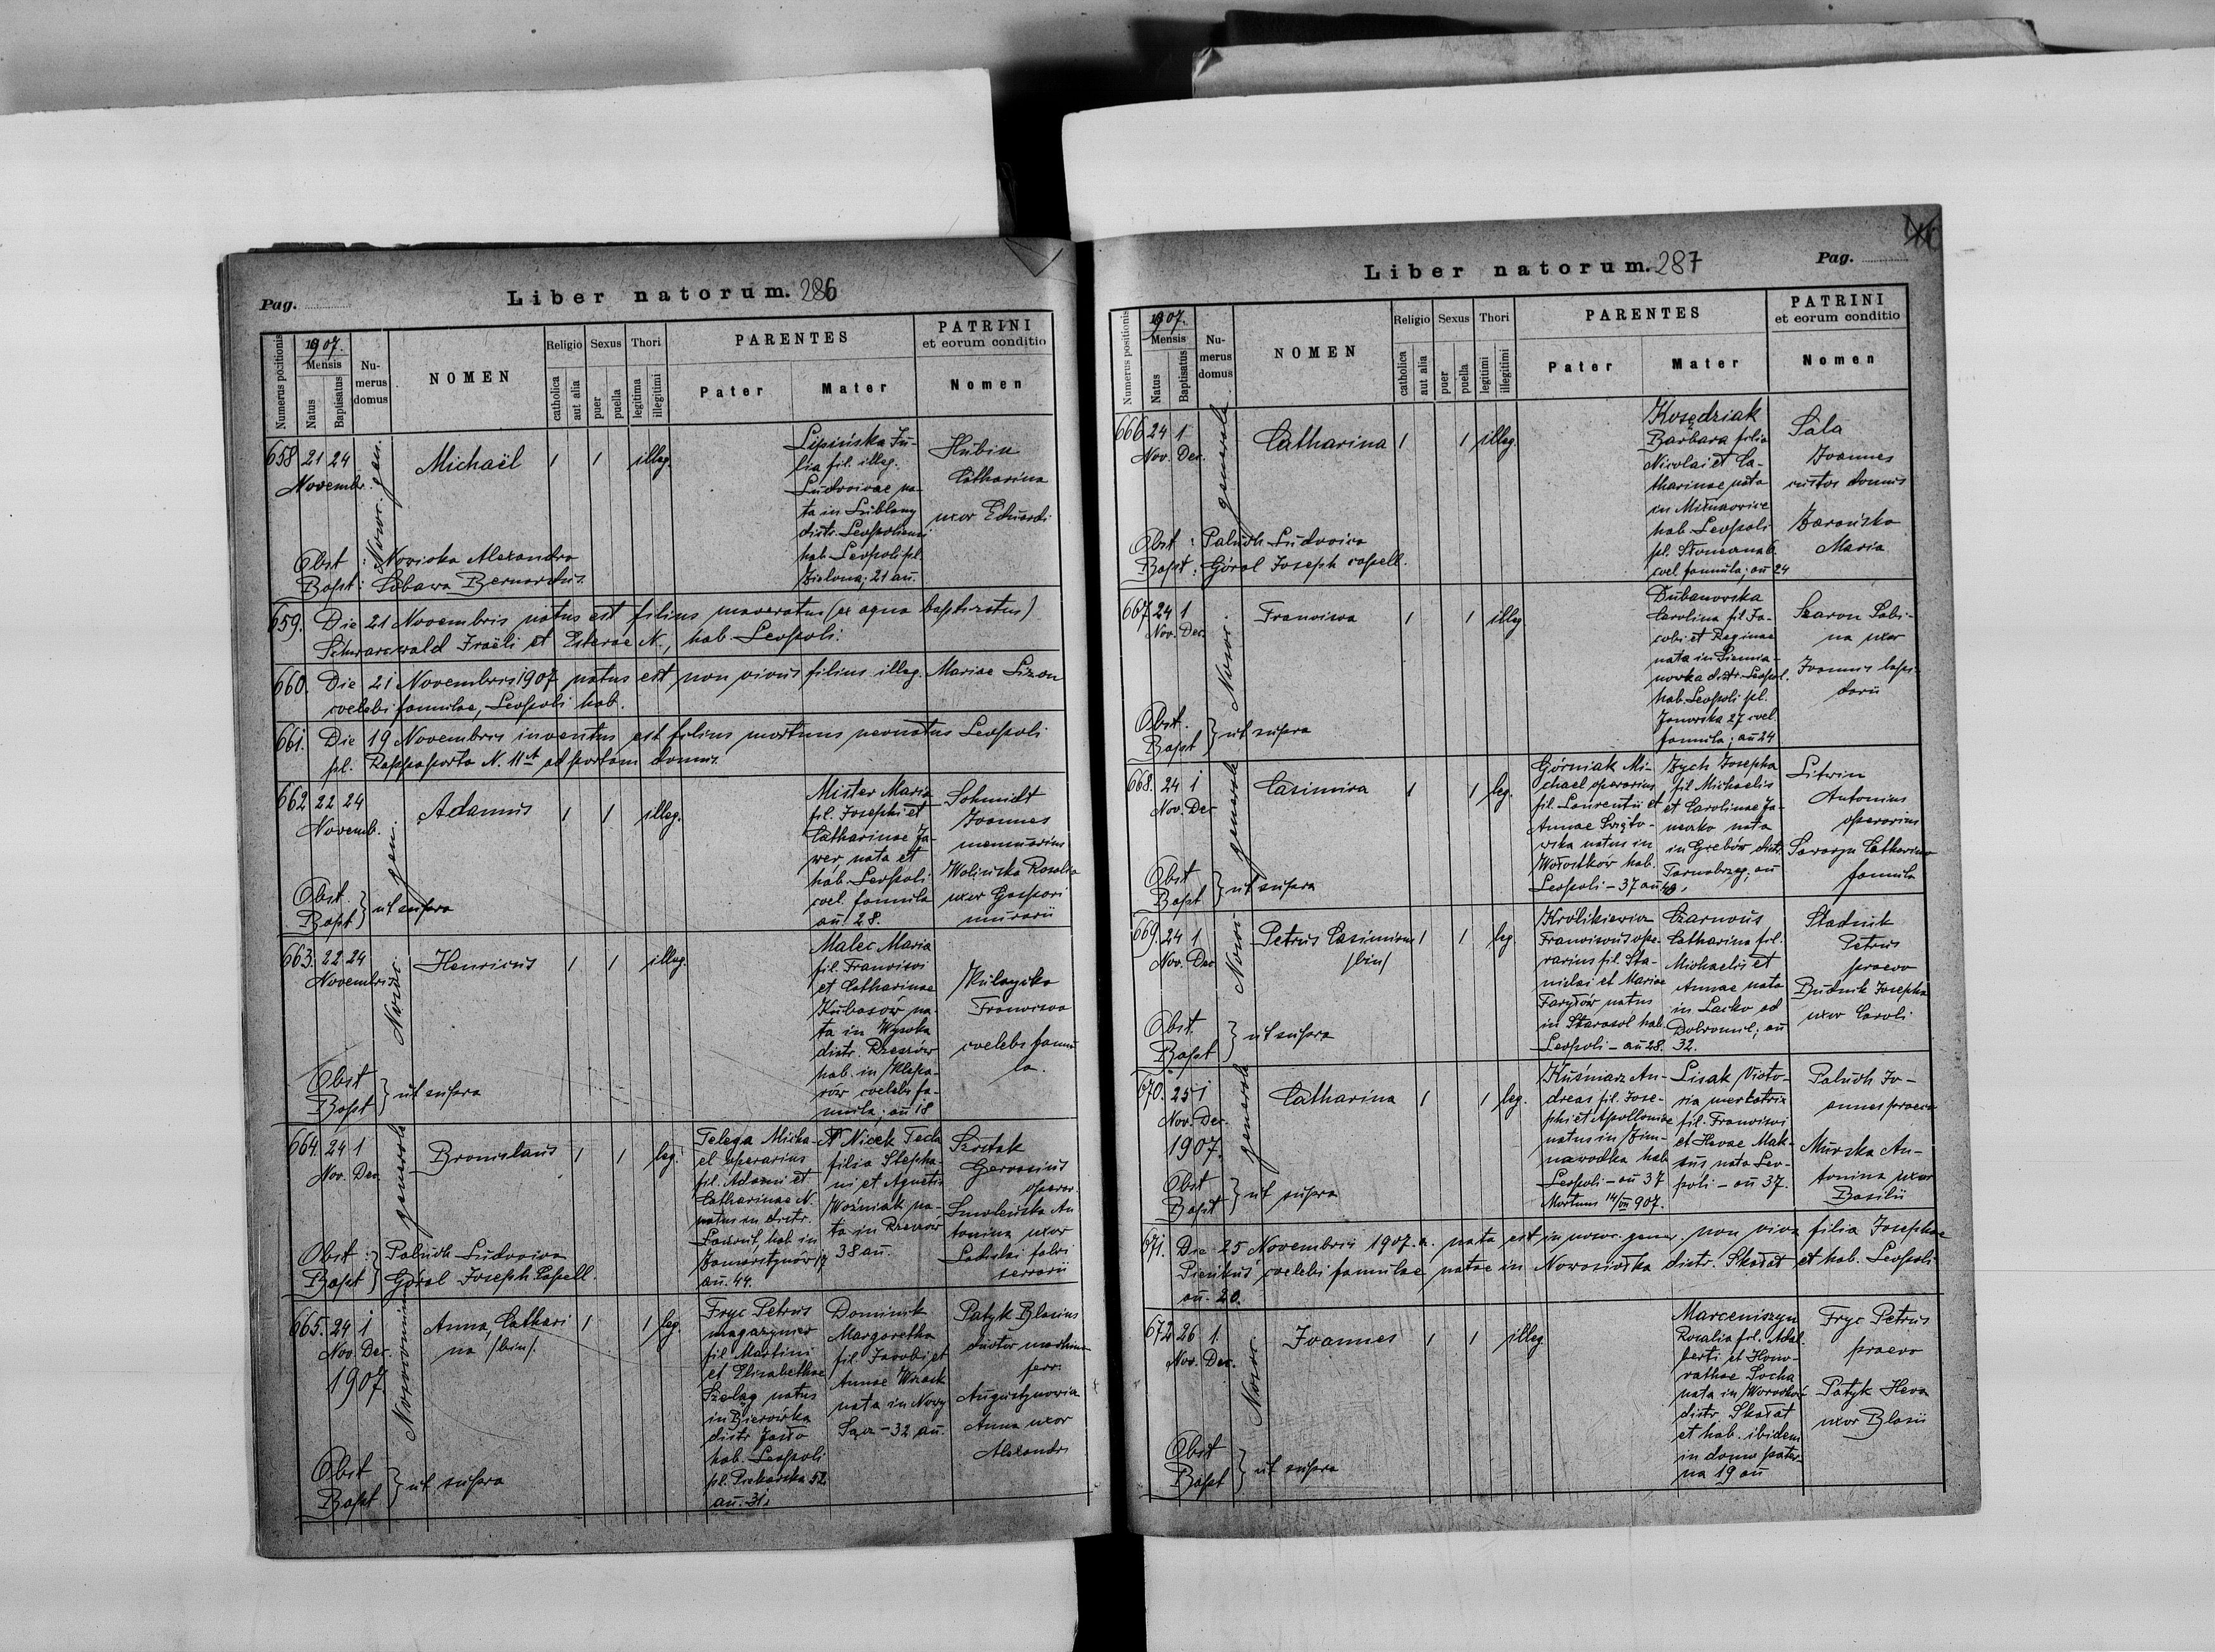 Pag.
Liber natorum. 286
Numerus positionis
1907.
Mensis
Natus
Baptisatus
Numerus domus
NOMEN
Religio
catholica
aut alia
Sexus
puer
puella
Thori
legitima
illegitimi
PARENTES
Pater
Mater
PATRINI
et eorum conditio
Nomen
658 21 24
Novembr.
Nosoc. gen.
Michaël
1 1 illeg.
Lipińska Ju-
lia fil. illeg.
Ludovicae na-
ta in Lublany
distr. Leopoliensi
hab. Leopoli pl.
Zielona; 21 an.
Hubin
Catharina
uxor Eduardi
Obst : Novicka Alexandra
Bapt : Lebawa Bernardus
659. Die 21 Novembris natus est filius maceratus (ex aqua baptisatus)
Schwarzwald Izraëli et Esterae N., hab. Leopoli.
660. Die 21 Novembris 1907 natus est non vivus filius illeg. Mariae Lizon
coelebis famulae, Leopoli hab.
661. Die 19 Novembris inventus est filius mortuus neonatus Leopoli
pl. Rappaporta N. 11 A ad portam domus.
662 22 24
Novemb.
gen.
Adamus
1 1 illeg.
Mister Maria
fil. Josephi et
Catharinae Ja-
wer nata et
hab. Leopoli
coel. famula
an 28.
Schmidt
Joannes
manuarius
Wolińska Rosalia
uxor Gaspari
murarii
Obst
Bapt } ut supra
663. 22 24
Novembris
Nosoc.
Henricus
1 1 illeg.
Malec Maria
fil. Francisci
et Catharinae
Kubasów na-
ta in Wysoka
distr. Rzeszów
hab. in Klepa-
rów coelebs fa-
mula; an 18
Kulczycka
Francisca
coelebs famu
la.
Obst
Bapt } ut supra
664. 24 1
Nov. Dec.
generale
Bronislaus
1 1 leg.
Telega Micha-
el operarius
fil. Adami et
Catharinae N.
natus in distr.
Łańcut hab. in
Zamarstynów 17
an. 44.
Nicek Tecla
filia Stepha-
ni et Agnetis
Woźniak na-
ta in Rzeszów
38 an.
Szostak
Gervasius
operar.
Smoleńska An
tonina uxor
Ladislai fabri
ferrarii
Obst :
Bapt } Paluch Ludovica
Góral Joseph Capell.
665. 24 1
Nov. Dec.
1907
Nosocomium
Anna, Cathari
na /bin/.
1 1 leg.
Fryc Petrus
magazynier
fil. Martini
et Elisabethae
Szeląg natus
in Bierówka
distr Jasło
hab. Leopoli
pl. Piekarska 52
an. 31.
Dominik
Margaretha
fil. Jacobi et
Annae Wzack
nata in Nowy
Sącz - 32 an.
Patyk Blasius
ductor machinae
ferr.
Augustynowicz
Anna uxor
Alexandri
Obst
Bapt } ut supra
Pag.
Liber natorum. 287
Numerus positionis
1907.
Mensis
Natus
Baptisatus
Numerus domus
NOMEN
Religio
catholica
aut alia
Sexus
puer
puella
Thori
legitimi
illegitimi
PARENTES
Pater
Mater
PATRINI
et eorum conditio
Nomen
666 24 1
Nov. Dec.
generale
Catharina
1 1 illeg.
Kosędziak
Barbara filia
Nicolai et Ca-
tharinae nata
in Miłnowice
hab. Leopoli
pl. Słoneczna 6
coel. famula; an 24
Sala
Joannes
custos domus
Barańska
Maria
Obst : Paluch Ludovica
Bapt : Góral Joseph capell.
667 24 1
Nov. Dec.
Nosoc.
Francisca
1 1 illeg
Dubanowska
Carolina fil Ja-
cobi et Reginae
nata in Siemia-
nowka distr. Leopol.
hab. Leopoli pl.
Janowska 27 coel
famula; an 24
Szaron Sabi-
na uxor
Joannis lapi-
darii
Obst.
Bapt } ut supra
668. 24 1
Nov. Dec
generale
Casimira
1 1 leg.
Górniak Mi-
chael operarius
fil. Laurentii et
Annae Święto-
rska natus in
Wołostków hab.
Leopoli - 37 an
Zych Josepha
fil Michaelis
et Carolinae Ja-
neczko nata
in Grębów distr
Tarnobrzeg; an
40.
Litwin
Antonius
operarius
Sawaryn Catharina
famula
Obst
Bapt } ut supra
669. 24 1
Nov. Dec
Nosoc.
Petrus Casimirus
/bin/
1 1 leg.
Królikiewicz
Franciscus ope-
rarius fil. Sta-
nislai et Mariae
Faryłów natus
in Starasol hab.
Leopoli - an 28.
Czarnous
Catharina fil.
Michaelis et
Annae nata
in Lacko ad
Dobromil; an
32.
Stadnik
Petrus
praeco
Budnik Josepha
uxor Caroli
Obst.
Bapt } ut supra
670. 25 1
Nov. Dec.
1907.
generale
Catharina
1 1 leg.
Kuśniarz An-
dreas fil. Jose-
phi et Apolloniae
natus in Zim-
nawodka hab
Leopoli - an 37
Mortuus 14/VII 907.
Lisak Victo-
ria mercatrix
fil. Francisci
et Hevae Mak-
sus nata Leo-
poli - an 37.
Paluch Jo-
annes praeco
Murska An-
tonina uxor
Basilii
Obst
Bapt } ut supra
671. Die 25 Novembris 1907. a. nata est in nosoc. gener. non viva filia Josephae
Pieńkus coelebis famulae natae in Nowosiółka distr. Skałat et hab. Leopoli
an. 20.
672 26 1.
Nov. Dec.
Nosoc.
Joannes
1 1 illeg.
Marceniszyn
Rosalia fil. Adal.
berti et Hono-
rathae Socha
nata in Worobiówka
distr Skałat
et hab. ibidem
in domo pater-
na 19 an
Fryc Petrus
praeco
Patyk Heva
uxor Blasii
Obst
Bapt } ut supra